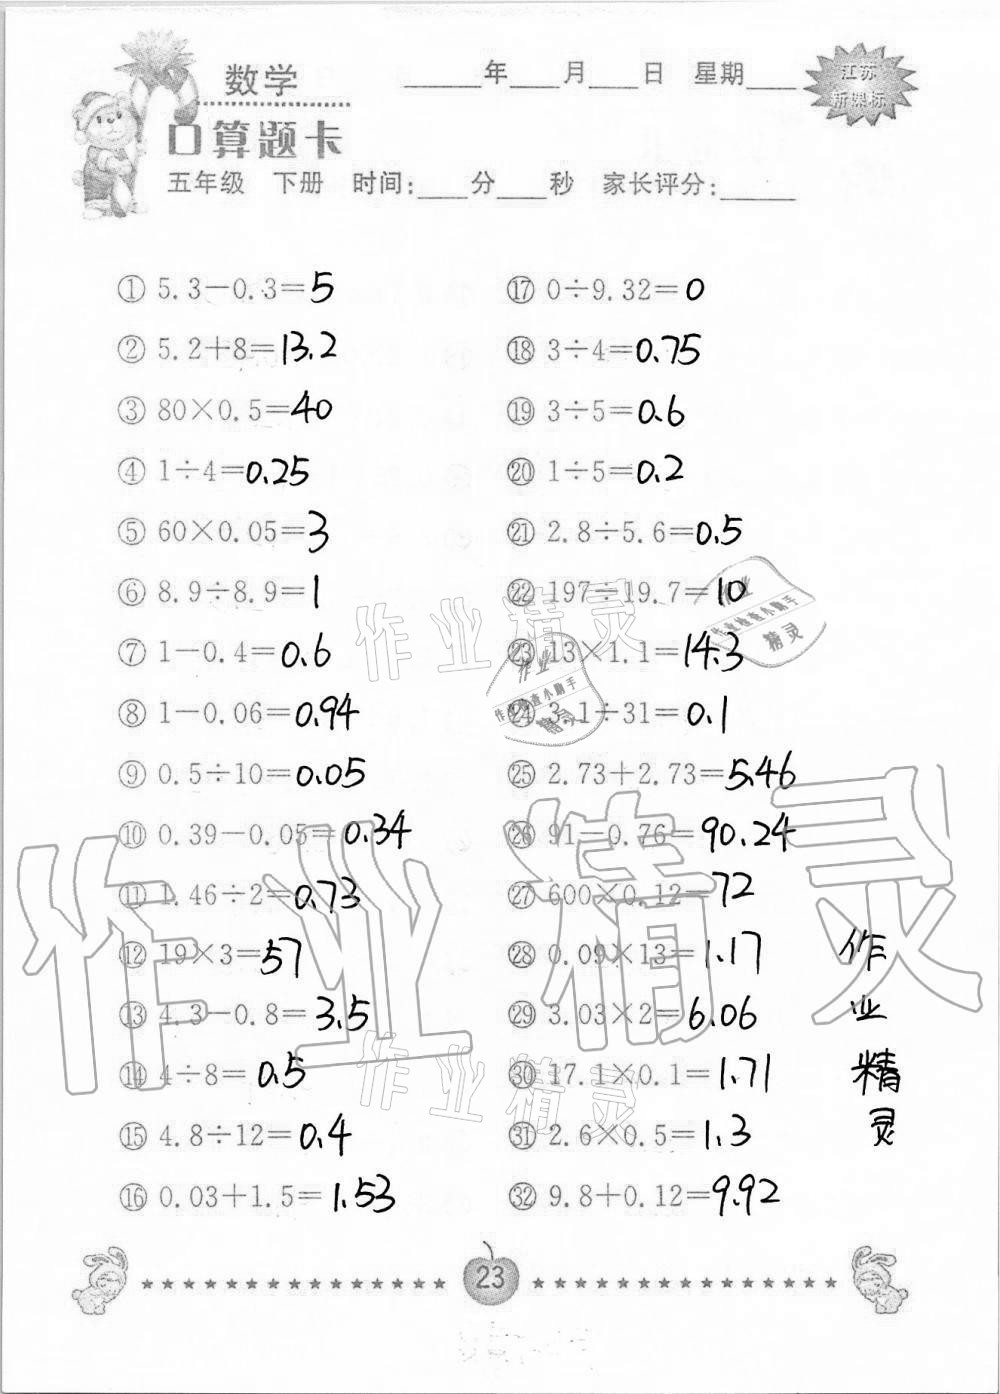 数学
口算题卡
____年____月____日 星期____
江苏
新课标
五年级 下册 时间:____分____秒 家长评分:______
① 5.3－0.3=5
② 5.2+8=13.2
③ 80×0.5=40
④ 1÷4=0.25
⑤ 60×0.05=3
⑥ 8.9÷8.9=1
⑦ 1－0.4=0.6
⑧ 1－0.06=0.94
⑨ 0.5÷10=0.05
⑩ 0.39－0.05=0.34
⑪ 1.46÷2=0.73
⑫ 19×3=57
⑬ 4.3－0.8=3.5
⑭ 4÷8=0.5
⑮ 4.8÷12=0.4
⑯ 0.03+1.5=1.53
⑰ 0÷9.32=0
⑱ 3÷4=0.75
⑲ 3÷5=0.6
⑳ 1÷5=0.2
㉑ 2.8÷5.6=0.5
㉒ 197÷19.7=10
㉓ 13×1.1=14.3
㉔ 3.1÷31=0.1
㉕ 2.73+2.73=5.46
㉖ 91－0.76=90.24
㉗ 600×0.12=72
㉘ 0.09×13=1.17
㉙ 3.03×2=6.06
㉚ 17.1×0.1=1.71
㉛ 2.6×0.5=1.3
㉜ 9.8+0.12=9.92
作
业
精
灵
作业精灵
作业
作业检查小助手
精灵
作业
作业检查小助手
精灵
作业精灵
作业精灵
23